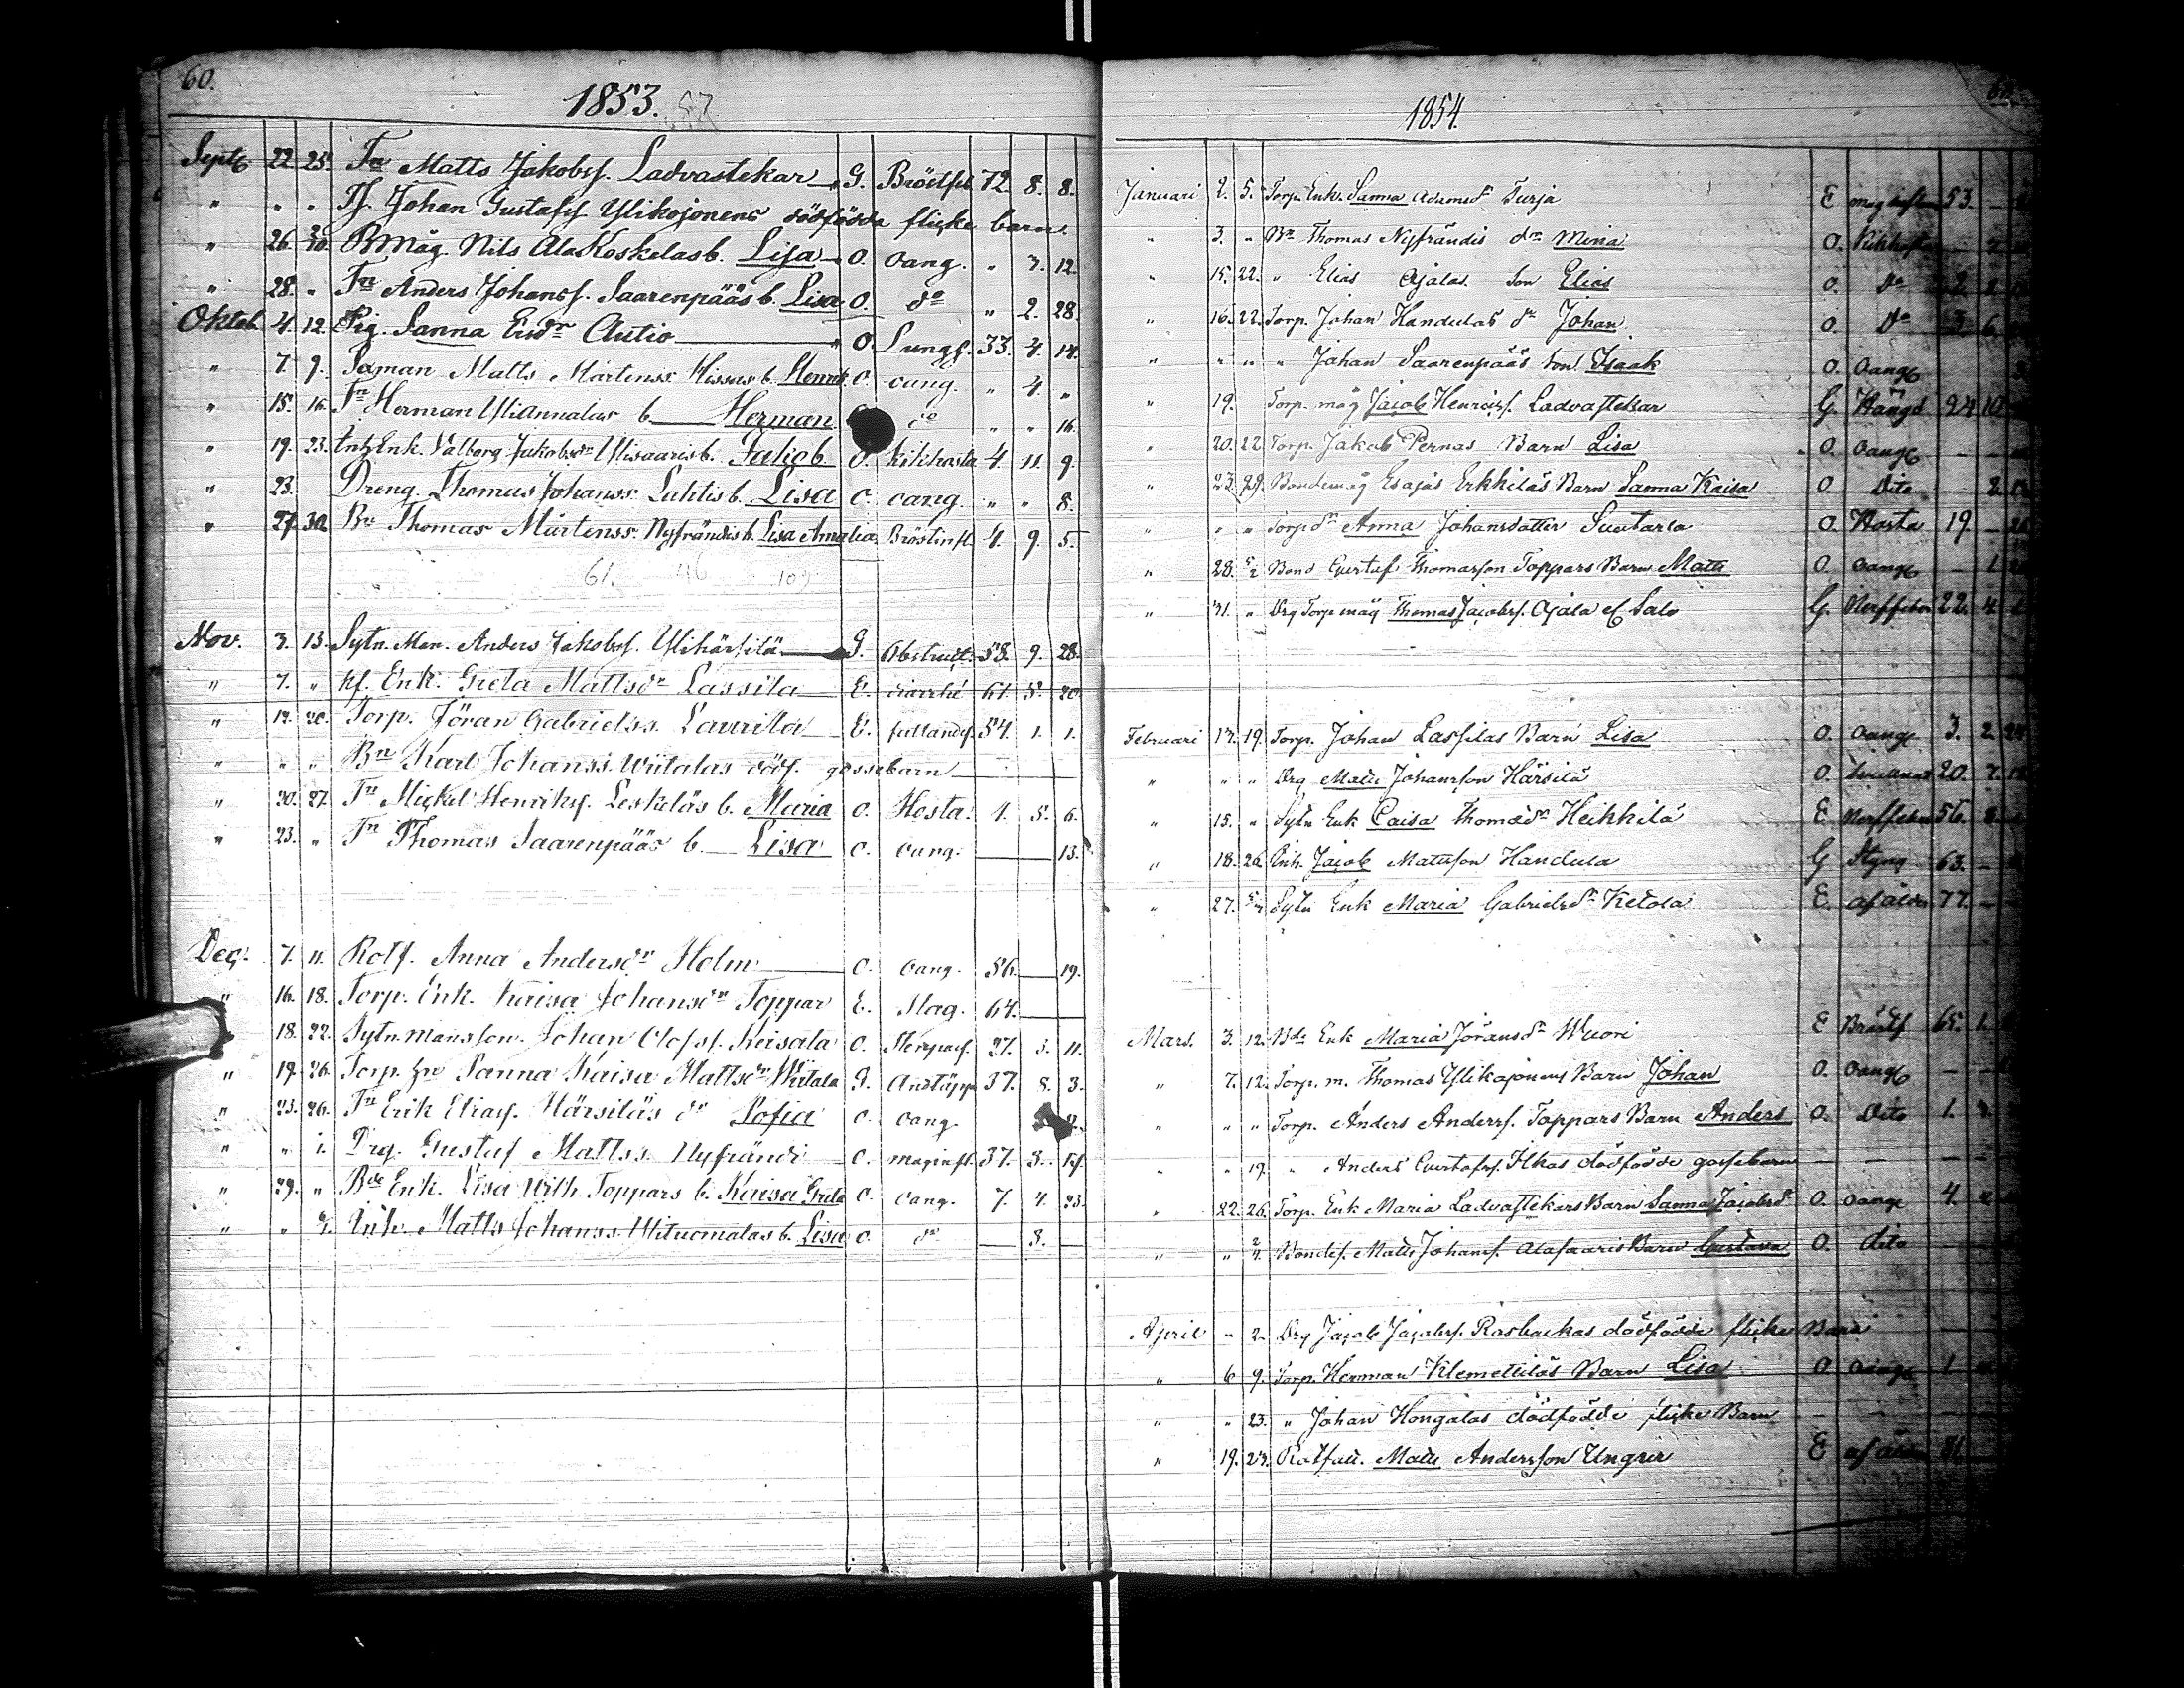 60.
1853.
Septb 22. 25. Tn Matts Jakobsf. Ladvastekar G. Bröstfel 72. 8. 8.
" " " Tf. Johan Gustafsf Ylikojonens dödfödda flicke barn.
" 26. 30. Bmåg. Nils AlaKoskelas b. Lisa O. oang. " 3. 12.
" 28. " Tn Anders Johansf. Saarenpääs b. Lisa O. do " 2. 28.
Oktob. 4. 12. Pig. Sanna Ersdr Autio O. Lungf. 33. 4. 14.
" 7. 9. Saman Matts Mårtenss. Hissas b. Henrik O. oang. " 4. "
" 15. 16. Tn Herman Uliannalas b. Herman do " " 16.
" 19. 23. Enk. Valborg Jakobsdr Ylisaaris b. Jakob O. kikhosta 4. 11. 9.
" 23. Dreng. Thomas Johanss. Lahtis b. Lisa O. oang. " " 8.
" 27. 30. Bn Thomas Mårtenss. Nyfrändis b. Lisa Amalia Bröstinfl. 4. 9. 5.
61. 46 109
Nov. 3. 13. Sytn. Man. Anders Jakobsf. Ylihärsilä G. Obstruct. 58. 9. 28.
" 7. " kf. Enk. Greta Mattsdr Lassila E. diarrhé 61. 5. 20.
" 12. 20. Torp. Jöran Gabrielss. Laurila E. fallandes. 54. 1. 1.
" " " Bn Karl Johanss. Wiitalas dödf. gossebarn
" 20. 27. Tn Mickel Henriksf. Leskeläs b. Maria O. Hosta. 1. 5. 6.
" 23. " Tn Thomas Saarenpääs b. Lisa O. oang. 13.
Dec. 7. 11. Rotf. Anna Andersdr Holm O. oang. 56. 19.
" 16. 18. Torp. Enk. Kaisa Johansdr Toppar E. Slag. 64.
18. 22. Sytn. mans son. Johan Olofsf. Keisala O. 27. 3. 11.
" 19. 26. Torp. hu Sanna Kaisa Mattsdr Wiitala G. Andtäppa 37. 8. 3.
" 23. 26. Tn Erik Eliasf. Härsiläs dr Sofia O. oang.
" " 1. Drg. Gustaf Mattss. Nyfrändi O. maginfl. 37. 3.
" 29. " Bde Enk. Lisa Wilh. Toppars b. Kaisa Greta O. oang. 7. 4. 23.
" " Inh. Matts Johanss. Ylituomalas b. Lisa O. do 3.
1854.
Januari 2. 5. Torp. Enk. Sanna Adamsdr Turja E 53.
" 3. " Bn Thomas Nyfrändis dr Mina O. Kikhosta
" 15. 22. " Elias Ojalas Son Elias O. do 2.
" 16. 22. Torp. Johan Handulas dr Johan O. do 3. 6.
" " " " Johan Saarenpääs Son Isaak O. oang
" 19. Torp. måg Jacob Henricsf. Ladvastekar G. Hängd 24 10
" 20. 22 Torp. Jakob Pernas Barn Lisa O. oang
" 23. 29. Bondemåg Esajas Erkkiläs Barn Sanna Kaisa O. Dito 2.
" " " Torp dr Anna Johansdotter Suutarla O. Hosta 19.
" 28. 5/2 Bond Gustaf Thomasson Toppars Barn Matts O. oang 1.
" 31. " Drg Torp måg Thomas Jacobsf. Ojala el Salo G. Nerffeber 22. 4.
Februari 17. 19. Torp. Johan Lassilas Barn Lisa O. oang 3. 2.
" " " Drg Matts Johansson Härsilä O. 20. 7.
" 15. " Sytn Enk Caisa Thomasdr Heikkilä E Nerffeber 56. 8.
" 18. 26. Inh. Jacob Mattsson Handula G Styng 63.
" 27. Sytn Enk Maria Gabrielsdr Ketola E. af ålder 77.
Mars. 3. 12. Bde Enk Maria Jöransdr Wuori E Bröstf 65. 1.
" 7. 12. Torp. m. Thomas Ylikojonens Barn Johan O. oang
" " " Torp. Anders Andersf. Toppars Barn Anders O. Dito 1.
" " 19. " Anders Gustafsf. Ilkas dödfödde gossebarn
" 22. 26. Torp. Enk Maria Ladvastekars Barn Sanna Jacobsdr O. oang 4
" " 2/4 Bondes. Matts Johansf. Alasaaris Barn Gustava O. dito
April " 2. Drg Jacob Jacobsf. Rosbackas dödfödde flicke Barn
" 6 9. Torp. Herrman Klemetiläs Barn Lisa O. oang 1
" " 23. " Johan Hongalas dödfödde flicke Barn
" 19. 23. Rotfatt. Matts Andersson Ungrir E af ålder 81